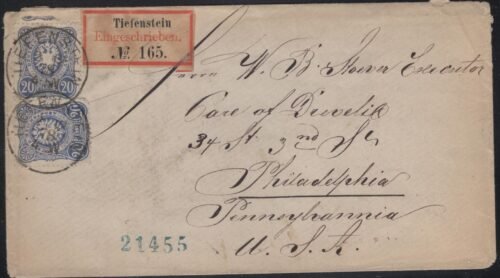 Tiefenstein
Eingeschrieben.
№ 165.
20 20
TIEFENSTEIN
Herrn W. B. Stover Executor
Care of
34 St. 3rd St.
Philadelphia
Pennsylvannia
U. S. A.
21455